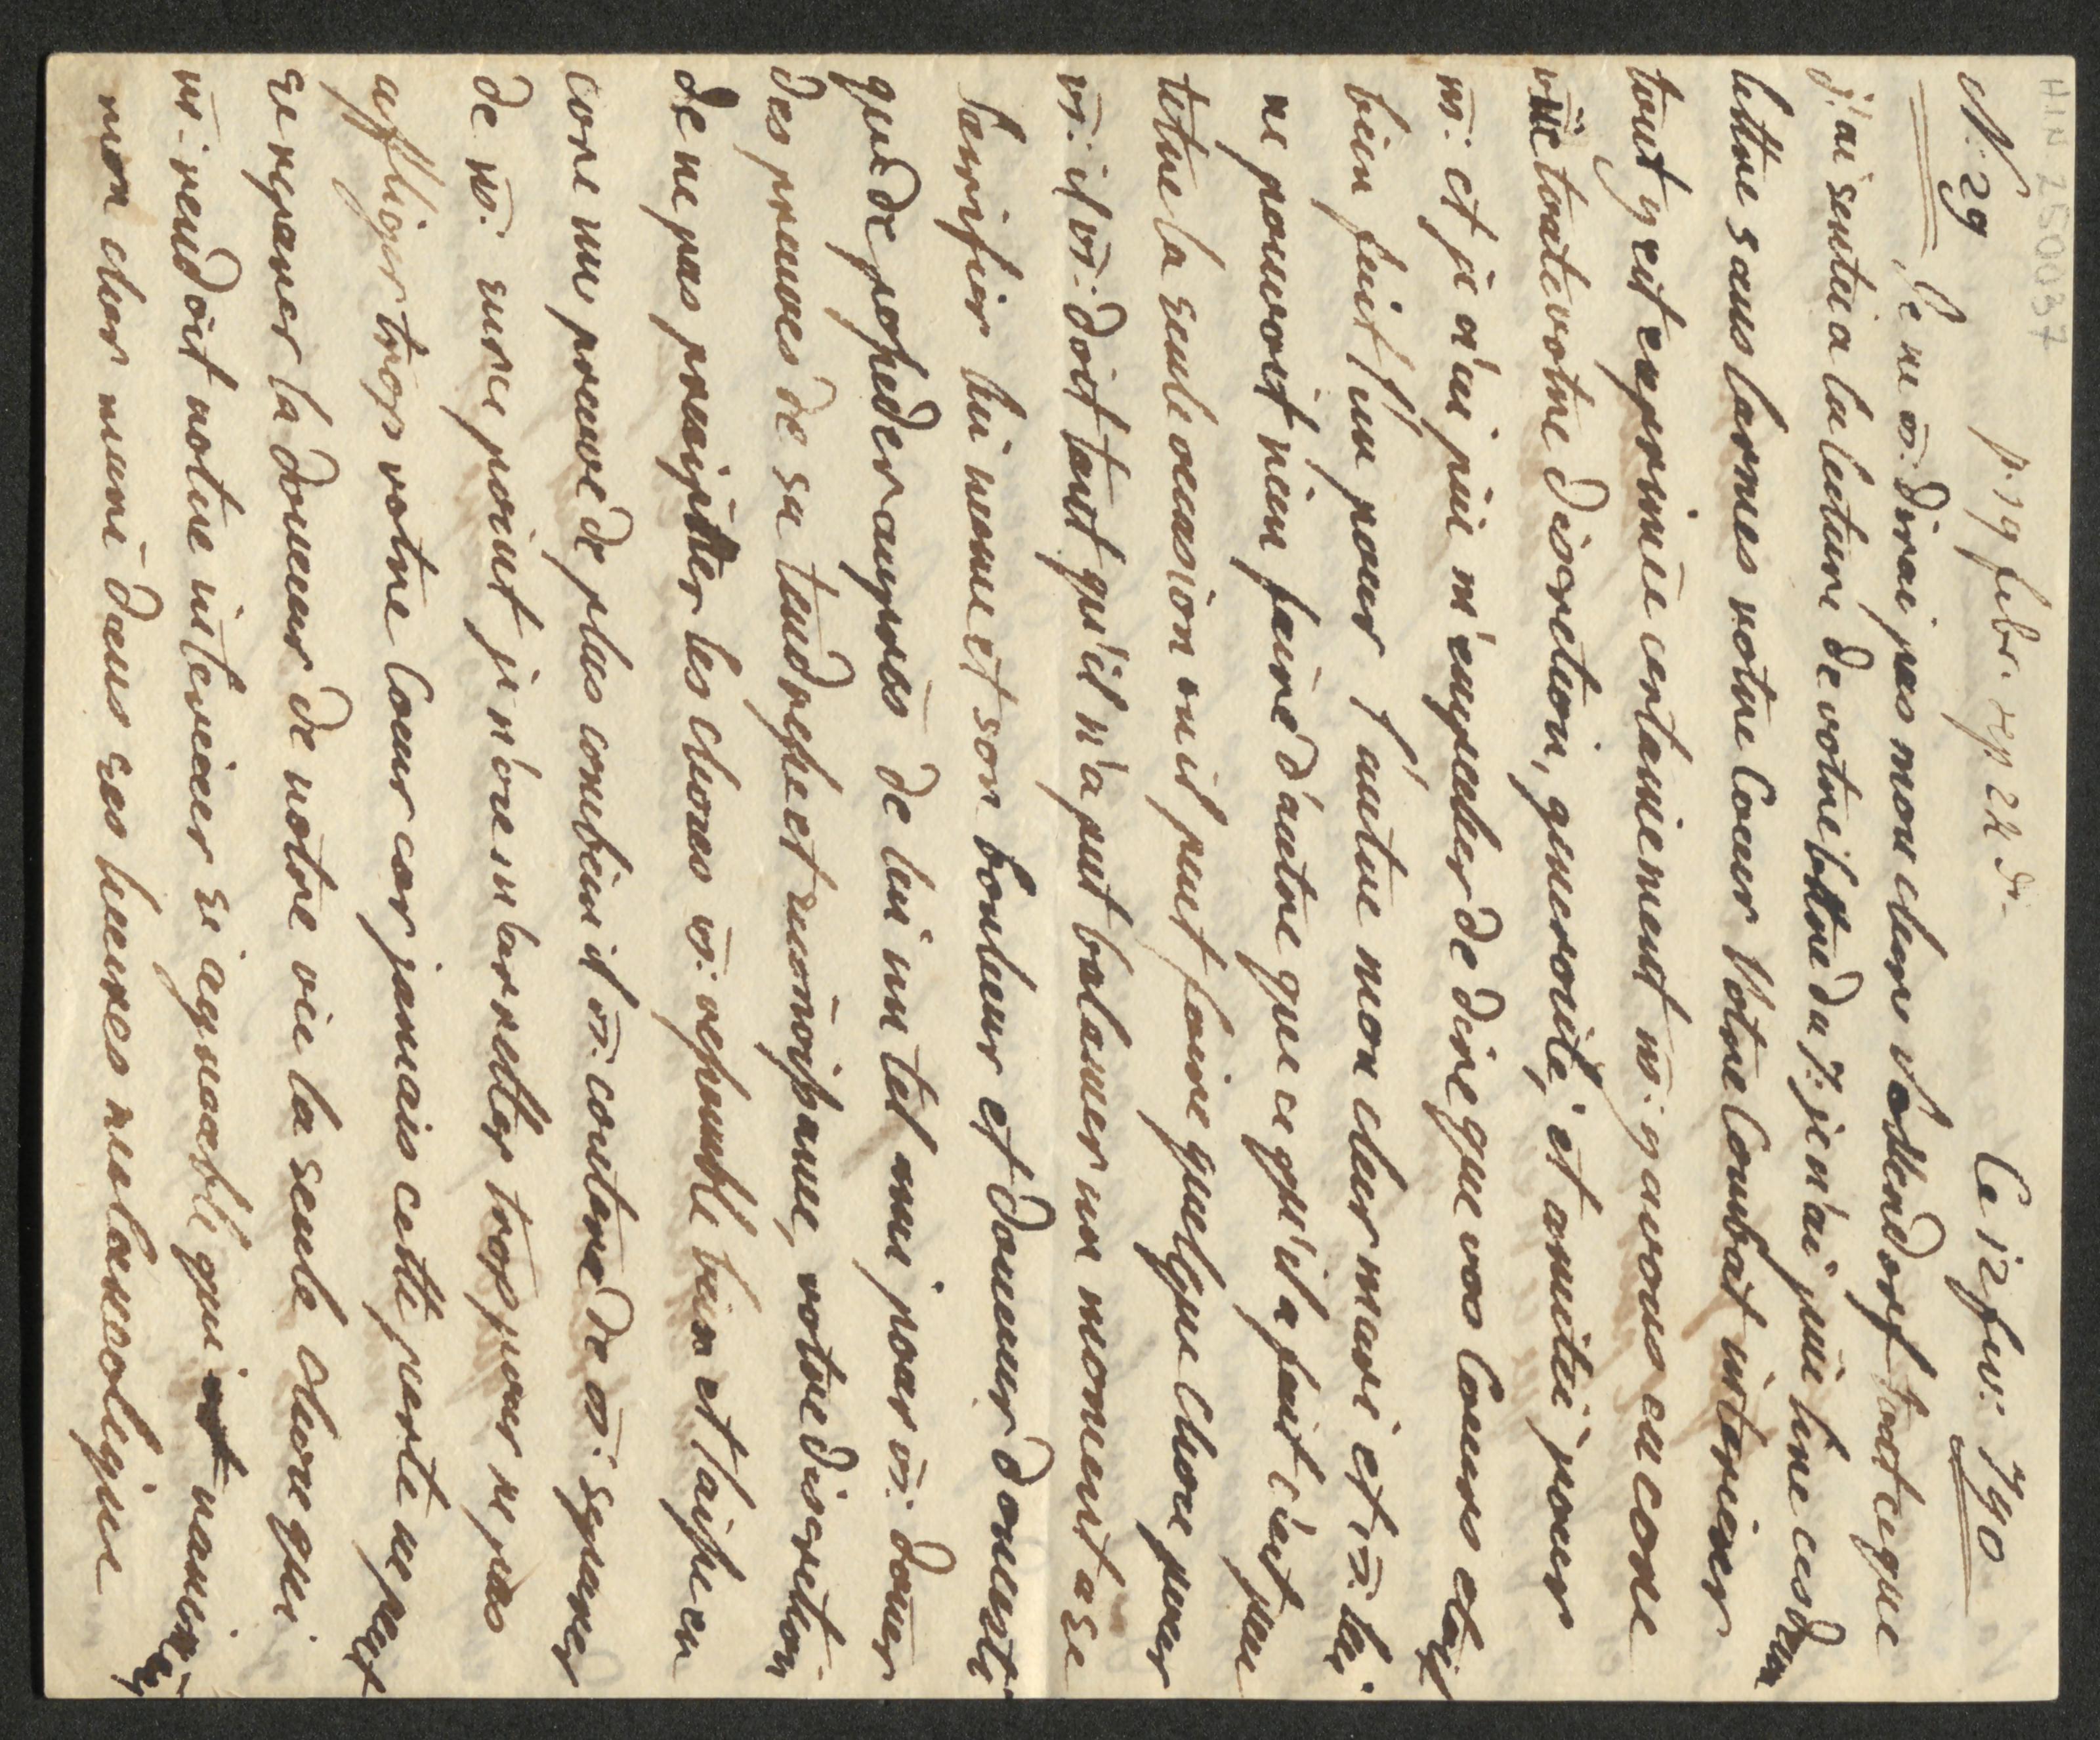 HIN 2500037
N: 29 p. 19 febr. rep. 22 d.
Ce 12 fev: 790
Je ne vs: dirai pas mon chere Vostendorf tout ce que
j'ai sentie a la lecture de votre lettre du 7: je n'ai pue lire ces deux
lettre sans larmes votre Coeur Votre Combat interieur
tout y est exprimée certainement vs: y aurons en core
vue toute votre discretion, generosité, et amitié pour
vs: et je n'ai pue m'empecher de dire que vos Coeurs etoit
bien fait l'un pour l'autre mon cher mari et vs: lui
ne pouvoit rien faire d'autre que ce qu'il a fait c'est peu
tetre la seule occasion ou il peut faire quelque chose pour
vs: il vs: doit tant qu'il n'a put balancer un moment a se
Sacrifier lui meme et son bonheur et douceur domesti
que de posseder aupres de lui un tel ami pour vs: doner
des preuves de sa tendresse et reconoissance, votre discretion
de ne pas precipiter les choses vs: ressemble bien et laisse en
core un preuve de plus combien il vs: coutera de vs: separer
de vs: surce point je n'ose m'arretter trop pour ne pas
affliger trop votre Coeur car jamais cette perte ne peut
se reparer la douceur de notre vie la seule chose qui
vs: rendoit notre interieur si agreable que
mon cher mari dans ses heures melancolique